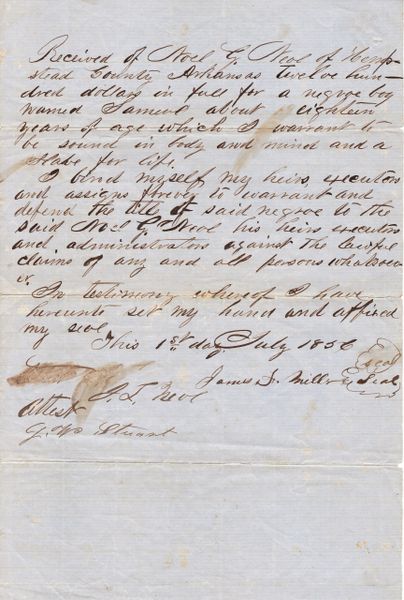 Received of Noel G. Neal of Hemp-
stead County Arkansas twelve hun-
dred dollars in full for a negroe boy
named Samuel about eighteen
years of age which I warrant to
be sound in body and mind and a
slave for life.
I bind myself my heirs, executors
and assigns forever to warrant and
defend the title of said negroe to the
said Noel G. Neal his heirs executors
and administrators against the lawful
claims of any and all persons whatsoev
er.
In testimony whereof I have
hereunto set my hand and affixed
my seal
This 1st day July 1856
Seal
James Mills Seal
Attest
G. W. Stuart